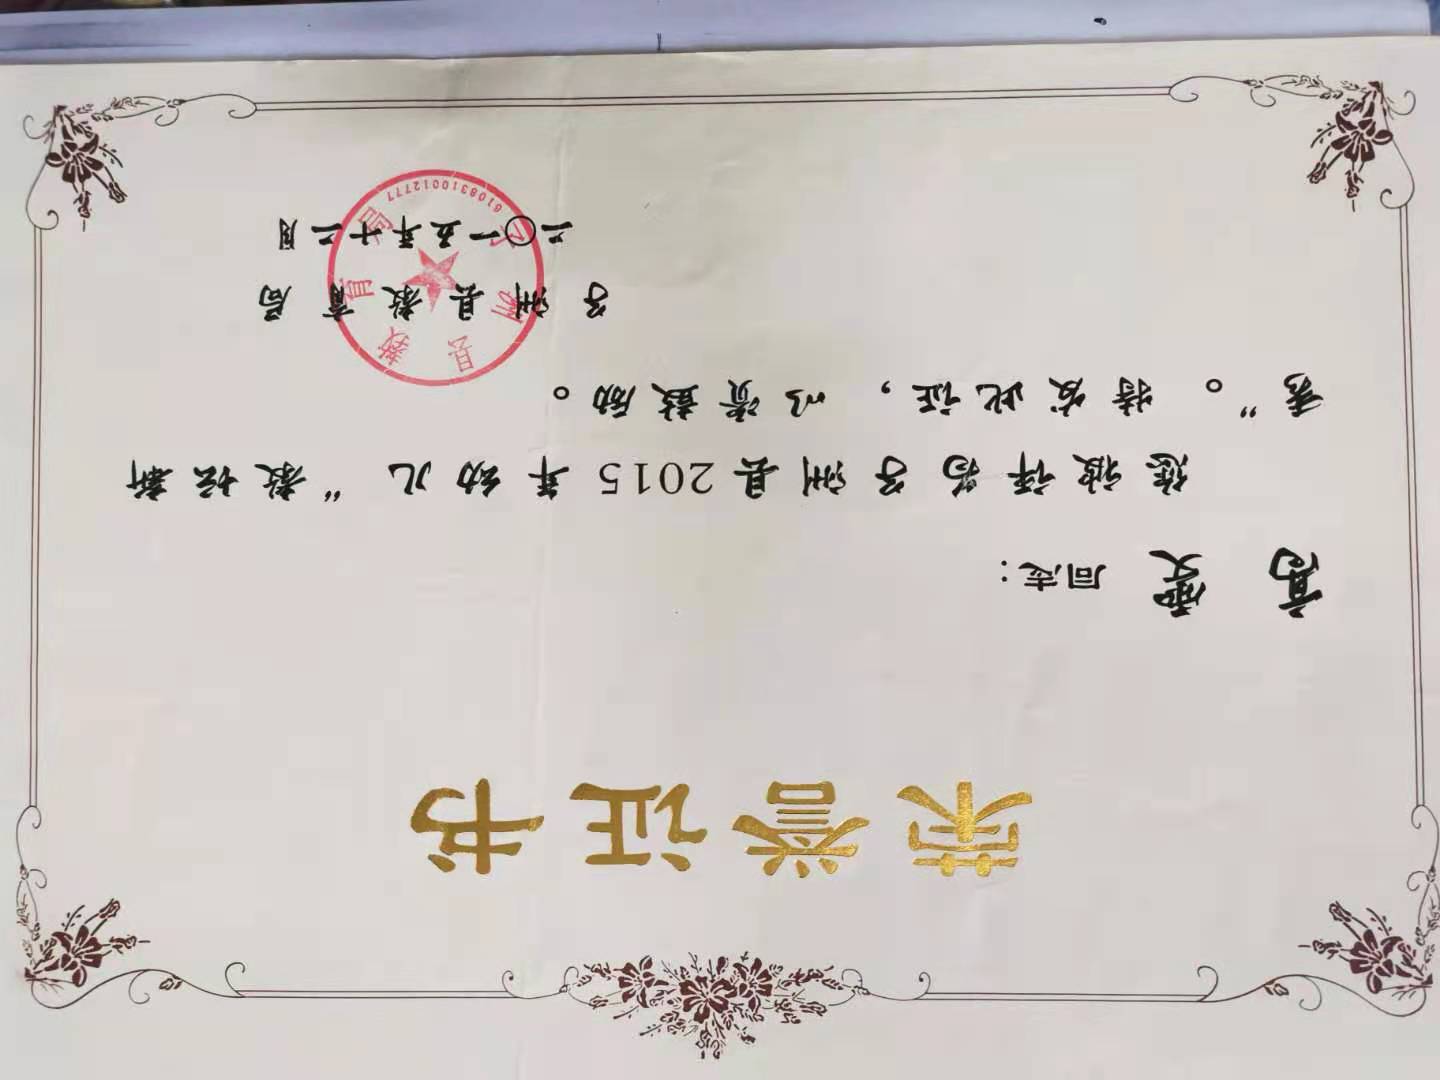 荣誉证书
高雯 同志：
您被评为子洲县2015年幼儿“教坛新
秀”。特发此证，以资鼓励。
子洲县教育局
二〇一五年十二月
子洲县教育局
6108310012777